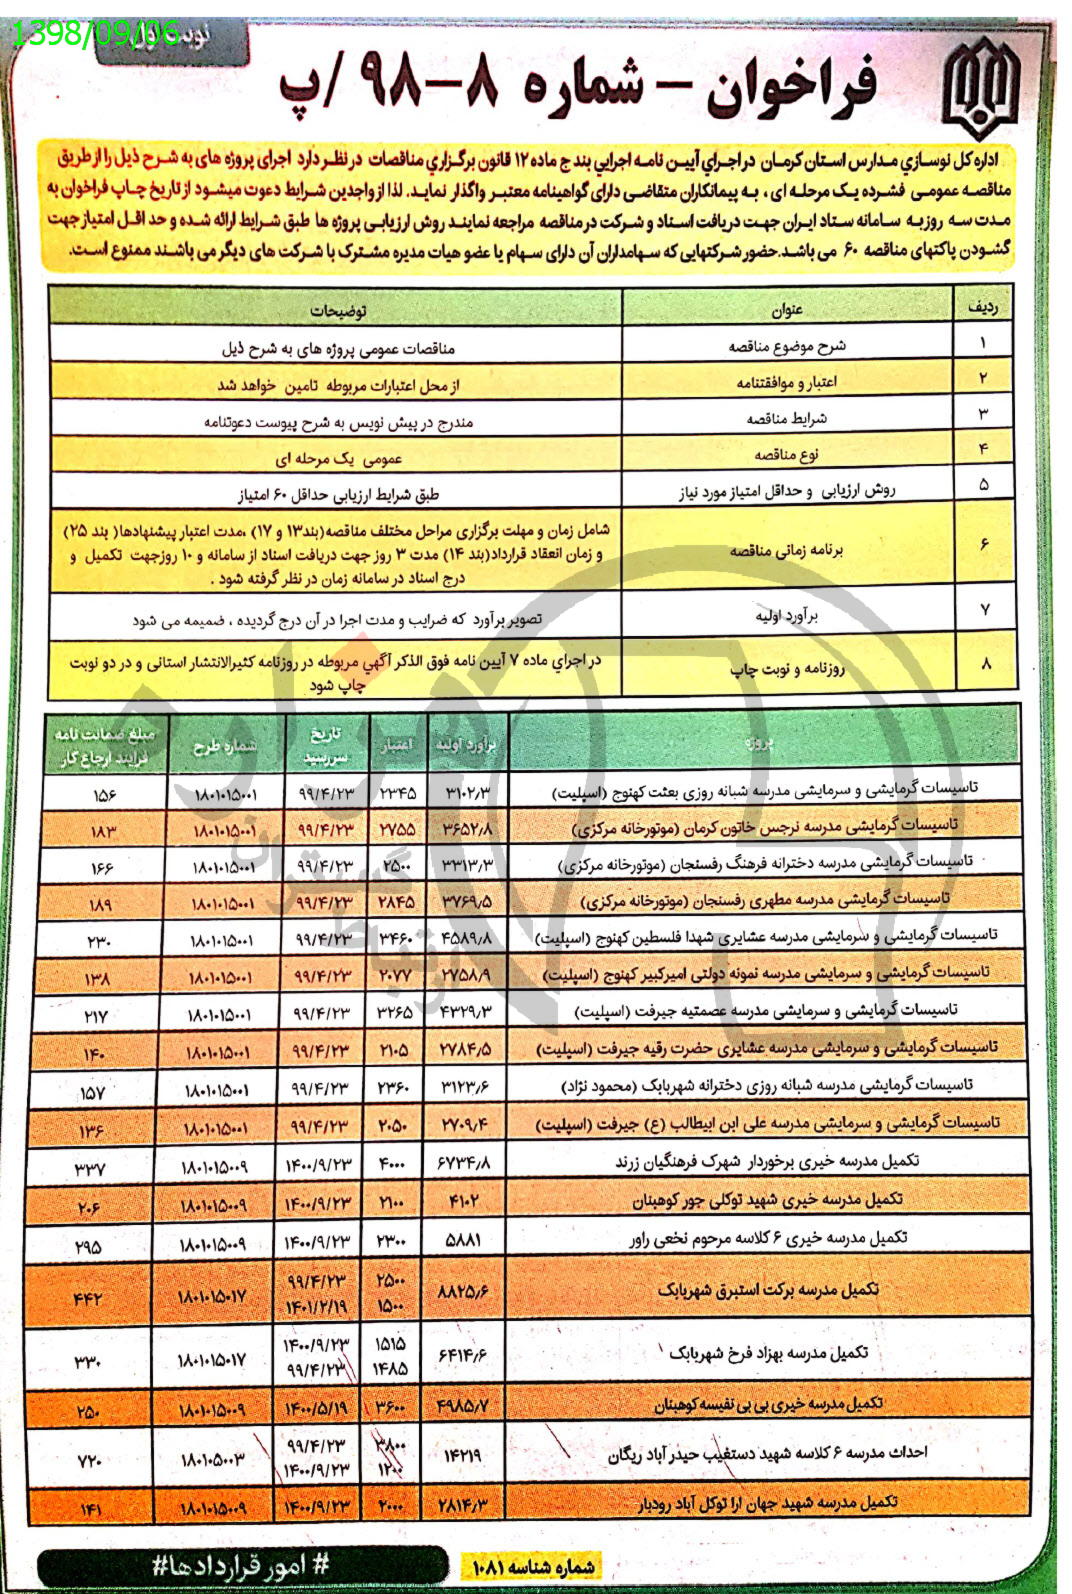 1398/09/06
نوبت اول
فراخوان - شماره ۸-۹۸ /پ
اداره کل نوسازي مدارس استان كرمان در اجراي آيين نامه اجرايي بند ج ماده ۱۲ قانون برگزاري مناقصات در نظر دارد اجرای پروژه های به شرح ذیل را از طریق
مناقصه عمومی فشرده یک مرحله ای ، به پیمانکاران متقاضی دارای گواهینامه معتبر واگذار نماید. لذا از واجدین شرایط دعوت میشود از تاریخ چاپ فراخوان به
مدت سه روز به سامانه ستاد ایران جهت دریافت اسناد و شرکت در مناقصه مراجعه نمایند روش ارزیابی پروژه ها طبق شرایط ارائه شده و حد اقل امتیاز جهت
گشودن پاکتهای مناقصه ۶۰ می باشد.حضور شرکتهایی که سهامداران آن دارای سهام یا عضو هیات مدیره مشترک با شرکت های دیگر می باشند ممنوع است.
ردیف عنوان توضیحات
۱ شرح موضوع مناقصه مناقصات عمومی پروژه های به شرح ذیل
۲ اعتبار و موافقتنامه از محل اعتبارات مربوطه تامین خواهد شد
۳ شرایط مناقصه مندرج در پیش نویس به شرح پیوست دعوتنامه
۴ نوع مناقصه عمومی یک مرحله ای
۵ روش ارزیابی و حداقل امتیاز مورد نیاز طبق شرایط ارزیابی حداقل ۶۰ امتیاز
۶ برنامه زمانی مناقصه شامل زمان و مهلت برگزاری مراحل مختلف مناقصه(بند۱۳ و ۱۷) ،مدت اعتبار پیشنهادها( بند ۲۵)
و زمان انعقاد قرارداد(بند ۱۴) مدت ۳ روز جهت دریافت اسناد از سامانه و ۱۰ روزجهت تکمیل و
درج اسناد در سامانه زمان در نظر گرفته شود .
۷ برآورد اولیه تصویر برآورد که ضرایب و مدت اجرا در آن درج گردیده ، ضمیمه می شود
۸ روزنامه و نوبت چاپ در اجراي ماده ۷ آيين نامه فوق الذكر آگهي مربوطه در روزنامه كثيرالانتشار استانی و در دو نوبت
چاپ شود
پروژه برآورد اولیه اعتبار تاریخ سررسید شماره طرح مبلغ ضمانت نامه فرایند ارجاع کار
تاسیسات گرمایشی و سرمایشی مدرسه شبانه روزی بعثت کهنوج (اسپلیت) ۳۱۰۲٫۳ ۲۳۴۵ ۹۹/۴/۲۳ ۱۸۰۱۰۱۵۰۰۱ ۱۵۶
تاسیسات گرمایشی مدرسه نرجس خاتون کرمان (موتورخانه مرکزی) ۳۶۵۲٫۸ ۲۷۵۵ ۹۹/۴/۲۳ ۱۸۰۱۰۱۵۰۰۱ ۱۸۳
تاسیسات گرمایشی مدرسه دخترانه فرهنگ رفسنجان (موتورخانه مرکزی) ۳۳۱۳٫۳ ۲۵۰۰ ۹۹/۴/۲۳ ۱۸۰۱۰۱۵۰۰۱ ۱۶۶
تاسیسات گرمایشی مدرسه مطهری رفسنجان (موتورخانه مرکزی) ۳۷۶۹٫۵ ۲۸۴۵ ۹۹/۴/۲۳ ۱۸۰۱۰۱۵۰۰۱ ۱۸۹
تاسیسات گرمایشی و سرمایشی مدرسه عشایری شهدا فلسطین کهنوج (اسپلیت) ۴۵۸۹٫۸ ۳۴۶۰ ۹۹/۴/۲۳ ۱۸۰۱۰۱۵۰۰۱ ۲۳۰
تاسیسات گرمایشی و سرمایشی مدرسه نمونه دولتی امیرکبیر کهنوج (اسپلیت) ۲۷۵۸٫۹ ۲۰۷۷ ۹۹/۴/۲۳ ۱۸۰۱۰۱۵۰۰۱ ۱۳۸
تاسیسات گرمایشی و سرمایشی مدرسه عصمتیه جیرفت (اسپلیت) ۴۳۲۹٫۳ ۳۲۶۵ ۹۹/۴/۲۳ ۱۸۰۱۰۱۵۰۰۱ ۲۱۷
تاسیسات گرمایشی و سرمایشی مدرسه عشایری حضرت رقیه جیرفت (اسپلیت) ۲۷۸۴٫۵ ۲۱۰۵ ۹۹/۴/۲۳ ۱۸۰۱۰۱۵۰۰۱ ۱۴۰
تاسیسات گرمایشی مدرسه شبانه روزی دخترانه شهربابک (محمود نژاد) ۳۱۲۳٫۶ ۲۳۶۰ ۹۹/۴/۲۳ ۱۸۰۱۰۱۵۰۰۱ ۱۵۷
تاسیسات گرمایشی و سرمایشی مدرسه علی ابن ابیطالب (ع) جیرفت (اسپلیت) ۲۷۰۹٫۴ ۲۰۵۰ ۹۹/۴/۲۳ ۱۸۰۱۰۱۵۰۰۱ ۱۳۶
تکمیل مدرسه خیری برخوردار شهرک فرهنگیان زرند ۶۷۳۴٫۸ ۴۰۰۰ ۱۴۰۰/۹/۲۳ ۱۸۰۱۰۱۵۰۰۹ ۳۳۷
تکمیل مدرسه خیری شهید توکلی جور کوهبنان ۴۱۰۲ ۲۱۰۰ ۱۴۰۰/۹/۲۳ ۱۸۰۱۰۱۵۰۰۹ ۲۰۶
تکمیل مدرسه خیری ۶ کلاسه مرحوم نخعی راور ۵۸۸۱ ۲۳۰۰ ۱۴۰۰/۹/۲۳ ۱۸۰۱۰۱۵۰۰۹ ۲۹۵
تکمیل مدرسه برکت استبرق شهربابک ۸۸۲۵٫۶ ۲۵۰۰ ۱۵۰۰ ۹۹/۴/۲۳ ۱۴۰۱/۲/۱۹ ۱۸۰۱۰۱۵۰۱۷ ۴۴۲
تکمیل مدرسه بهزاد فرخ شهربابک ۶۴۱۴٫۶ ۱۵۱۵ ۱۴۸۵ ۱۴۰۰/۹/۲۳ ۹۹/۴/۲۳ ۱۸۰۱۰۱۵۰۱۷ ۳۳۰
تکمیل مدرسه خیری بی بی نفیسه کوهبنان ۴۹۸۵٫۷ ۳۶۰۰ ۱۴۰۰/۵/۱۹ ۱۸۰۱۰۱۵۰۰۹ ۲۵۰
احداث مدرسه ۶ کلاسه شهید دستغیب حیدر آباد ریگان ۱۴۲۱۹ ۳۸۰۰ ۱۲۰۰ ۹۹/۴/۲۳ ۱۴۰۰/۹/۲۳ ۱۸۰۱۰۵۰۰۳ ۷۲۰
تکمیل مدرسه شهید جهان ارا توکل آباد رودبار ۲۸۱۴٫۳ ۲۰۰۰ ۱۴۰۰/۹/۲۳ ۱۸۰۱۰۱۵۰۰۹ ۱۴۱
شماره شناسه ۱۰۸۱
# امور قراردادها#